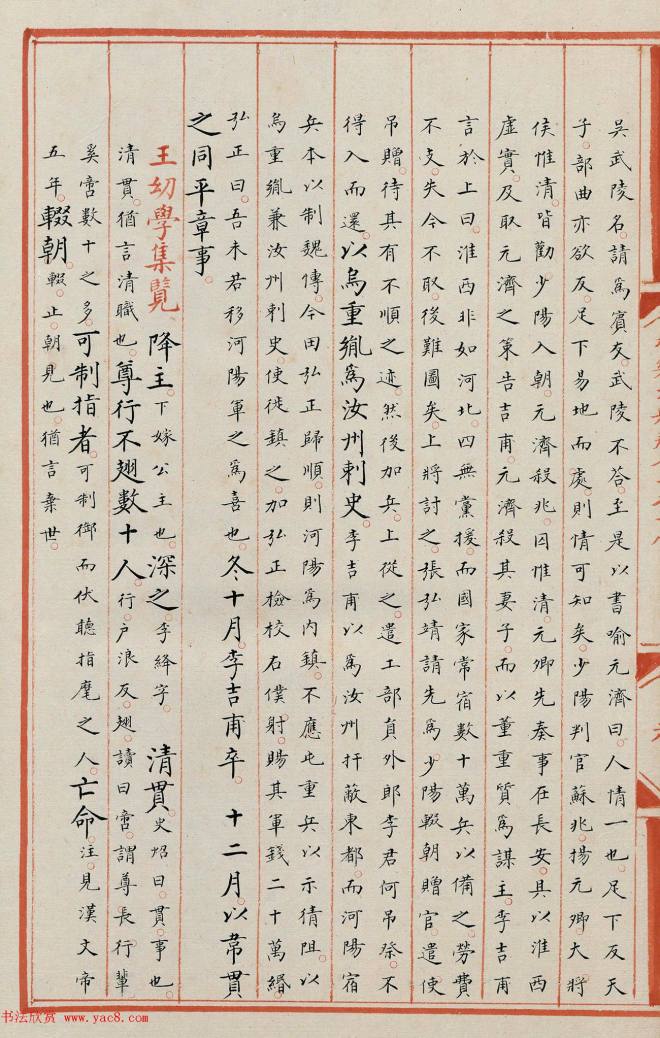 吳武陵名請爲賓友武陵不荅至是以書喻元濟曰人情一也足下反天
子部曲亦欲反足下易地而處則情可知矣少陽判官蘇兆揚元卿大將
侯惟清皆勸少陽入朝元濟殺兆囚惟清元卿先奏事在長安具以淮西
虛實及取元濟之策告吉甫元濟殺其妻子而以董重質爲謀主李吉甫
言於上曰淮西非如河北四無黨援而國家常宿數十萬兵以備之勞費
不支失今不取後難圖矣上將討之張弘靖請先爲少陽輟朝贈官遣使
吊贈待其有不順之迹然後加兵上從之遣工部員外郎李君何吊祭不
得入而還以烏重胤爲汝州刺史李吉甫以爲汝州扞蔽東都而河陽宿
兵本以制魏傳今田弘正歸順則河陽爲内鎮不應屯重兵以示猜阻以
烏重胤兼汝州刺史使徙鎮之加弘正檢校右僕射賜其軍錢二十萬緡
弘正曰吾未若移河陽軍之爲喜也冬十月李吉甫卒 十二月以韋貫
之同平章事
王幼學集覽 降主下嫁公主也深之李絳字 清貫史炤曰貫事也
清貫猶言清職也尊行不翅數十人行户浪反翅讀曰啻謂尊長行輩
奚啻數十之多可制指者可制御而伏聽指麾之人亡命注見漢文帝
五年輟朝輟止朝見也猶言棄世
书法欣赏 www.yac8.com